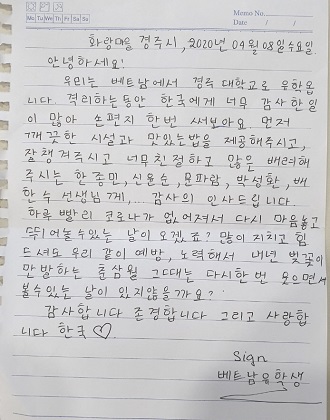 Mo Tu We Th Fr Sa Su
Memo No.
Date / /
화랑마을 경주시, 2020년 04월 08일 수요일
안녕하세요!
우리는 베트남에서 경주 대학교로 유학옵
니다. 격리하는동안 한국에게 너무 감사한일
이 많아 손편지 한번 써보아요. 먼저
깨끗한 시설과 맛있는밥을 제공해주시고,
잘챙겨주시고 너무친절하고 많은 배려해
주시는 한종민, 신윤순, 문파람, 박성환, 배
한수 선생님께,... 감사의 인사드립니다.
하루 빨리 코로나가 없어져서 다시 마음놓고
뛰어놀수있는 날이 오겠죠? 많이 지치고 힘
드셔도 우리 같이 예방, 노력해서 내년 벚꽃이
만발하는 춘삼월 그대는 다시한번 웃으면서
볼수있는 날이 있지않을까요?
감사합니다 존경합니다 그리고 사랑합
니다 한국 ♡.
Sign
베트남유학생